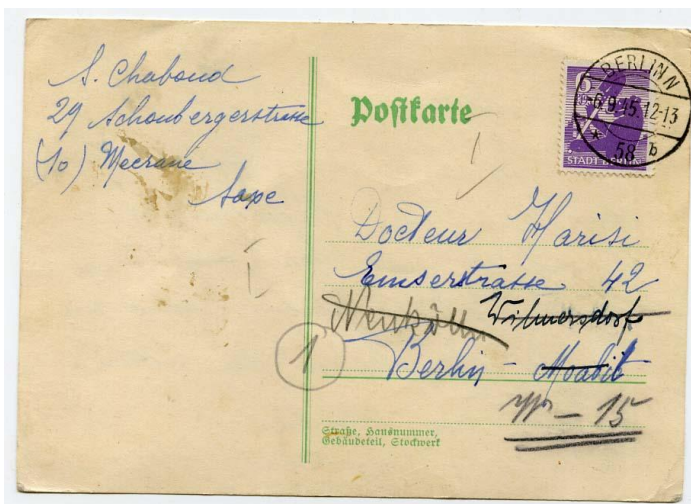 S. Chaboud
29 Schonbergerstrasse
(10) Meerane
Saxe
Postkarte
BERLIN N
-6.9.45.12-13
58 b
STADT BERLIN
Docteur Harisi
Emserstrasse 42
Neukölln Wilmersdorf
1
Berlin - Moabit
- 15
Straße, Hausnummer,
Gebäudeteil, Stockwerk